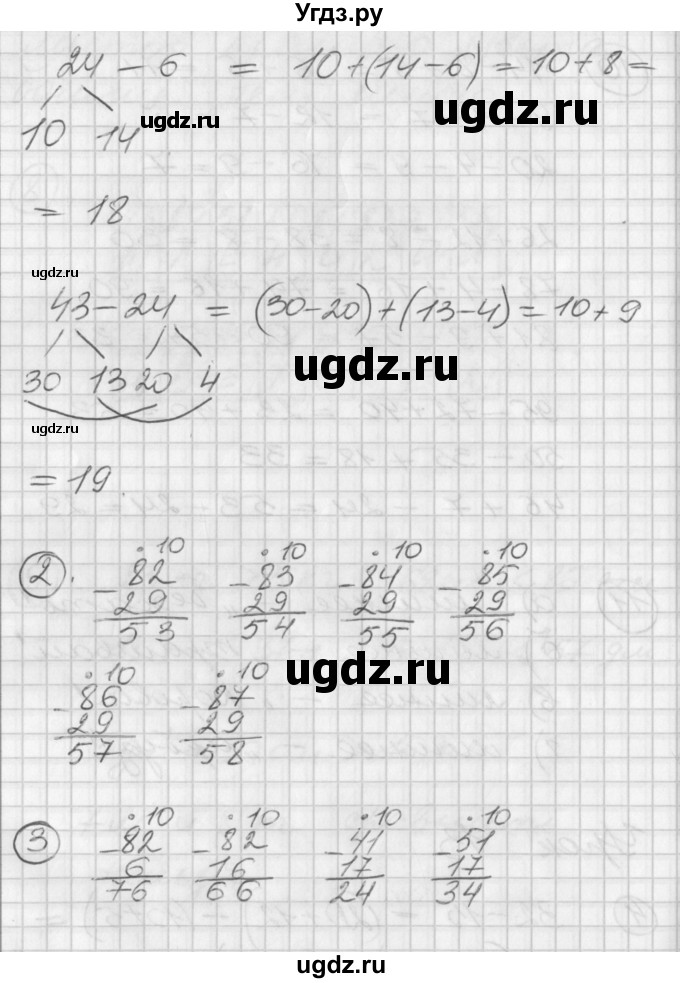 Угдз.ру
24 - 6 = 10+(14-6) = 10+8 =
10 14
= 18
43-24 = (30-20)+(13-4) = 10+9
30 13 20 4
= 19.
2.
·10 ·10 ·10 ·10
-82 -83 -84 -85
29 29 29 29
53 54 55 56
·10 ·10
-86 -87
29 29
57 58
3
·10 ·10 ·10 ·10
-82 -82 -41 -51
6 16 17 17
76 66 24 34
ugdz.ru
ugdz.ru
ugdz.ru
ugdz.ru
ugdz.ru
ugdz.ru
ugdz.ru
ugdz.ru